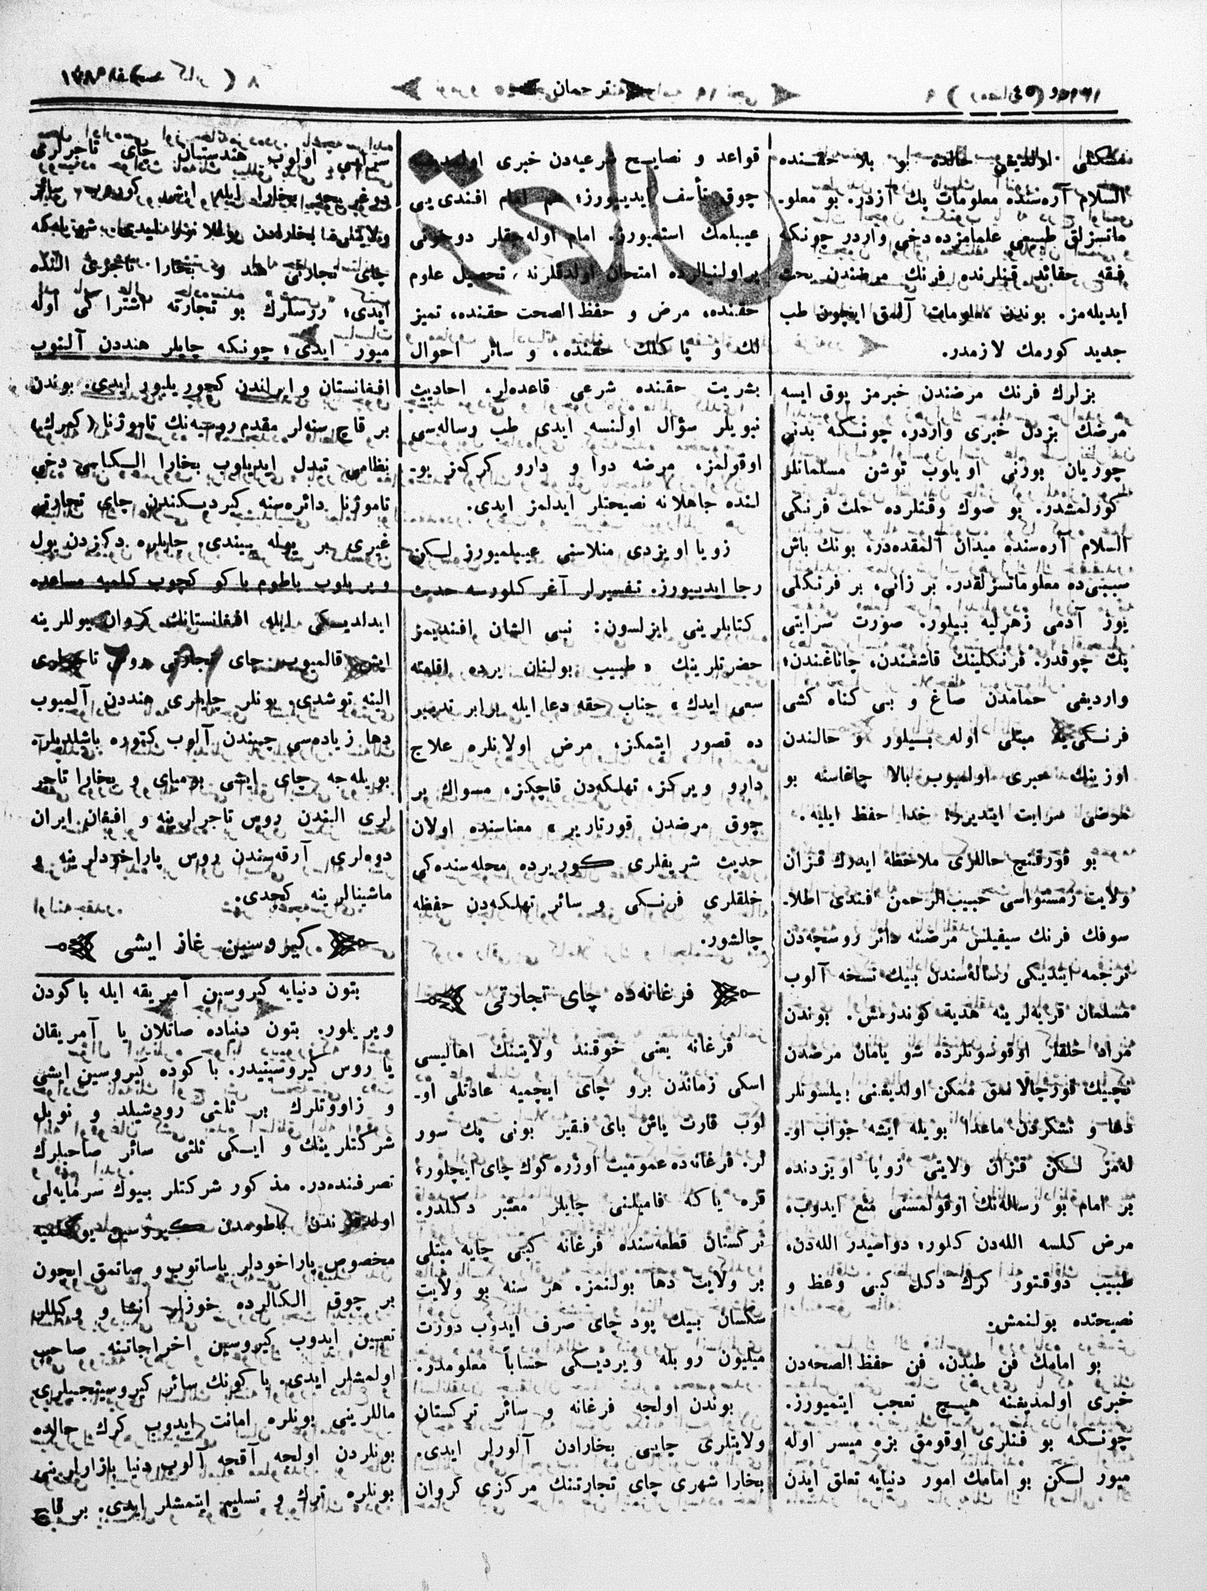 ترجمان
مشكلی اولدیغی حالده بو بلا حقنده
السلام آره‌سنده معلومات پك آزدر. بو معلو.
ماتسزلق طبیعی علمامزده‌دخی واردر چونكه
فقه حقائد فنلرنده فرنك مرضندن بحث
ایدیله‌مز. بوندن معلومات آلمق ایچون طب
جدید كورمك لازمدر.
بزلرك فرنك مرضندن خبرمز یوق ایسه
مرضك بزدن خبری واردر. چونكه بدنی
چوریان بورنی اویلوب توشن مسلمانلر
كورلمشدر. بو صوك وقتلرده علت فرنكی
السلام آره‌سنده میدان آلمقده‌در. بونك باش
سببی‌ده معلوماتسزلقدر. بر زانی، بر فرنكلی
یوز آدمی زهرلیه بیلور. صورت سرایتی
پك چوقدر. فرنكلینك قاشقندن، چاناغندن؛
واردیغی حمامدن صاغ و بی كناه كشی
فرنكی‌یه مبتلی اوله بیلور و حالندن
اوزینك خبری اولمیوب بالا چاغاسنه بو
مرضی سرایت ایتدیر؛ خدا حفظ ایلیه.
بو قورقنچ حاللری ملاحظه ایدرك قزان
ولایت زمستواسی حبیب‌الرحمن فندی اطلا.
سوفك فرنك سیفیلس مرضنه دائر روسچه‌دن
ترجمه ایتدیكی رساله‌سندن بیك نسخه آلوب
مسلمان قریه‌لرینه هدیه كوندرمش. بوندن
مراد خلقلر اوقوسونلرده شو یامان مرضدن
نچیك قورچالانمق ممكن اولدیغنی بیلسونلر
دعا و تشكردن ماعدا بویله ایشه جواب او.
له‌مز لكن قزان ولایتی زویا اویزدنده
بر امام بو رساله‌نك اوقولمسنی منع ایدوب،
مرض كلسه الله‌دن كلور، دواسیدر الله‌دن،
طبیب دوقتور كرك دكل كبی وعظ و
نصیحتده بولنمش.
بو امامك فن طبدن، فن حفظ الصحه‌دن
خبری اولمدیغنه هیچ تعجب ایتمیورز.
چونكه بو فنلری اوقومق بزه میسر اوله
میور لكن بو امامك امور دنیایه تعلق ایدن
قواعد و نصایح شرعیه‌دن خبری اولمدیغنه
چوق تأسف ایدییورز؛ هم امام افندی‌یی
عیبلمك استمیورز. امام اوله‌جقلر دوخونی
براولنیالرده امتحان اولدقلرنه، تحصیل علوم
حقنده، مرض و حفظ الصحت حقنده، تمیز
لك و پاكلك حقنده، و سائر احوال
بشریت حقنده شرعی قاعده‌لر، احادیث
نبویلر سؤال اولنسه ایدی طب رساله‌سی
اوقولمز، مرضه دوا و دارو كركمز بو.
لنده جاهلانه نصیحتلر ایدلمز ایدی.
زویا اویزدی منلاسنی عیبلمیورز لكن
رجا ایدییورز. تفسیرلر آغر كلورسه حدیث
كتابلرینی ایزلسون: نبی الشان افندیمز
حضرتلرینك «طبیب بولنان یرده اقامته
سعی ایدك» جناب حقه دعا ایله برابر تدبیر
ده قصور ایتمكز؛ مرض اولانلره علاج
دارو ویركز، تهلكه‌دن قاچكز، مسواك بر
چوق مرضدن قورتاریر» معناسنده اولان
حدیث شریفلری كوریرده محله‌سنده‌كی
خلقلری فرنكی و سائر تهلكه‌دن حفظه
چالشور.
فرغانه‌ده چای تجارتی
فرغانه یعنی خوقند ولایتنك اهالیسی
اسكی زماندن برو چای ایچمیه عادتلی او.
لوب قارت یاش بای فقیر بونی پك سور
لر. فرغانه‌ده عمومیت اوزره كوك چای ایچلور؛
قره یا كه فامیلنی چایلر معتبر دكلدر.
تركستان قطعه‌سنده فرغانه كبی چایه مبتلی
بر ولایت دها بولنمز. هر سنه بو ولایت
سكسان بیك پود چای صرف ایدوب دورت
میلیون روبله ویردیكی حساباً معلومدر.
بوندن اولجه فرغانه و سائر تركستان
ولایتلری چایی بخارادن آلورلر ایدی.
بخارا شهری چای تجارتنك مركزی كروان
سرایی اولوب هندستان چای تاجرلری
دوغریجه بخارا ایله ایشله كورییب سائر
ولایتلر بخارادن
چای تجارتی هند و بخارا تاجری النده
ایدی؛ روسلرك بو تجارته اشتراكی اوله
میور ایدی؛ چونكه چایلر هنددن آلنوب
افغانستان و ایراندن كچوریلیور ایدی. بوندن
بر قاچ سنه‌لر مقدم روسیه‌نك تاموژنا (كمرك)
نظامی تبدل ایدیلوب بخارا الكاسی دخی
تاموژنا دائره‌سنه كیردیكندن چای تجارتی
غیری بر یوله بیندی. چایلره دكزدن یول
ویریلوب باطوم باكو كچوب كلمیه مساعده
ایدلدیكی ایله افغانستانك كروان یوللرینه
ایش قالمیوب چای تجارتی روس تاجرلری
الینه توشدی. بونلر چایلری هنددن آلمیوب
دها زیاده‌سی چیندن آلوب كتوره باشلدیلر.
بویله‌جه چای ایشی بومبای و بخارا تاجر
لری الندن روس تاجرلرینه و افغان ایران
دوه‌لری آرقه‌سندن روس پاراخودلرینه و
ماشینالرینه كچدی.
كیروسین غاز ایشی
بتون دنیایه كیروسین آمریقه ایله باكودن
ویریلور. بتون دنیاده صاتلان یا آمریقان
یا روس كیروسینیدر. باكوده كیروسین ایشی
و زاوودلرك بر ثلثی رودشیلد و نوبل
شركتلرینك و ایكی ثلثی سائر صاحبلرك
تصرفنده‌در. مذكور شركتلر بیوك سرمایه‌لی
اولدقلرندن باطومدن كیروسین یوكلمیه
مخصوص پاراخودلر یاساتوب و صاتمق ایچون
بر چوق الكالرده خوزلر انشا و وكیللر
تعیین ایدوب كیروسین اخراجاتنه صاحب
اولمشلر ایدی. باكونك سائر كیروسینجیلری
ماللرینی بونلره امانت ایدوب كرك حالده
بونلردن اولجه آقچه آلوب دنیا بازارلرینی
بونلره ترك و تسلیم ایتمشلر ایدی. بر قاچ